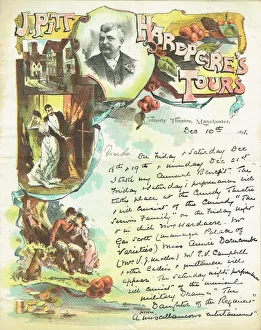 J. PITT
HARDACRE'S
TOURS
Comedy Theatre, Manchester,
Dec 10th 189
On Friday & Saturday Dec
18th & 19th & Monday Dec 21st
I take my Annual Benefit. The
Friday & Saturday performances will
take place at the Comedy Theatre
& will consist of the Comedy "The
Serious Family" on the Friday night
in which Miss Hardacre, Mr
Geo Scott (manager Palace of
Varieties) Miss Annie Darncombe
(Mrs) Mr T. D. Campbell
& other Ladies & gentlemen will
appear. The Saturday night's performance
will consist of the musical
military Drama "The
Daughter of the Regiment"
and
A miscellaneous entertainment